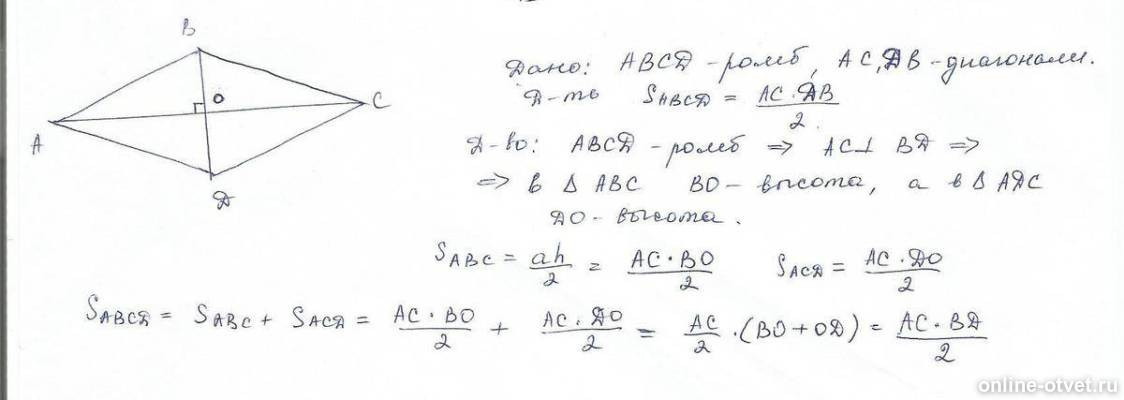 B
O
C
A
Д
Дано: ABCД - ромб, AC, ДB - диагонали.
Д-ть S_ABCД = AC · ДB / 2.
Д-во: ABCД - ромб => AC ⊥ BД =>
=> в Δ ABC BO - высота, а в Δ AДC
ДO - высота.
S_ABC = ah / 2 = AC · BO / 2 S_ACД = AC · ДO / 2
S_ABCД = S_ABC + S_ACД = AC · BO / 2 + AC · ДO / 2 = AC / 2 · (BO + OД) = AC · BД / 2
online-otvet.ru